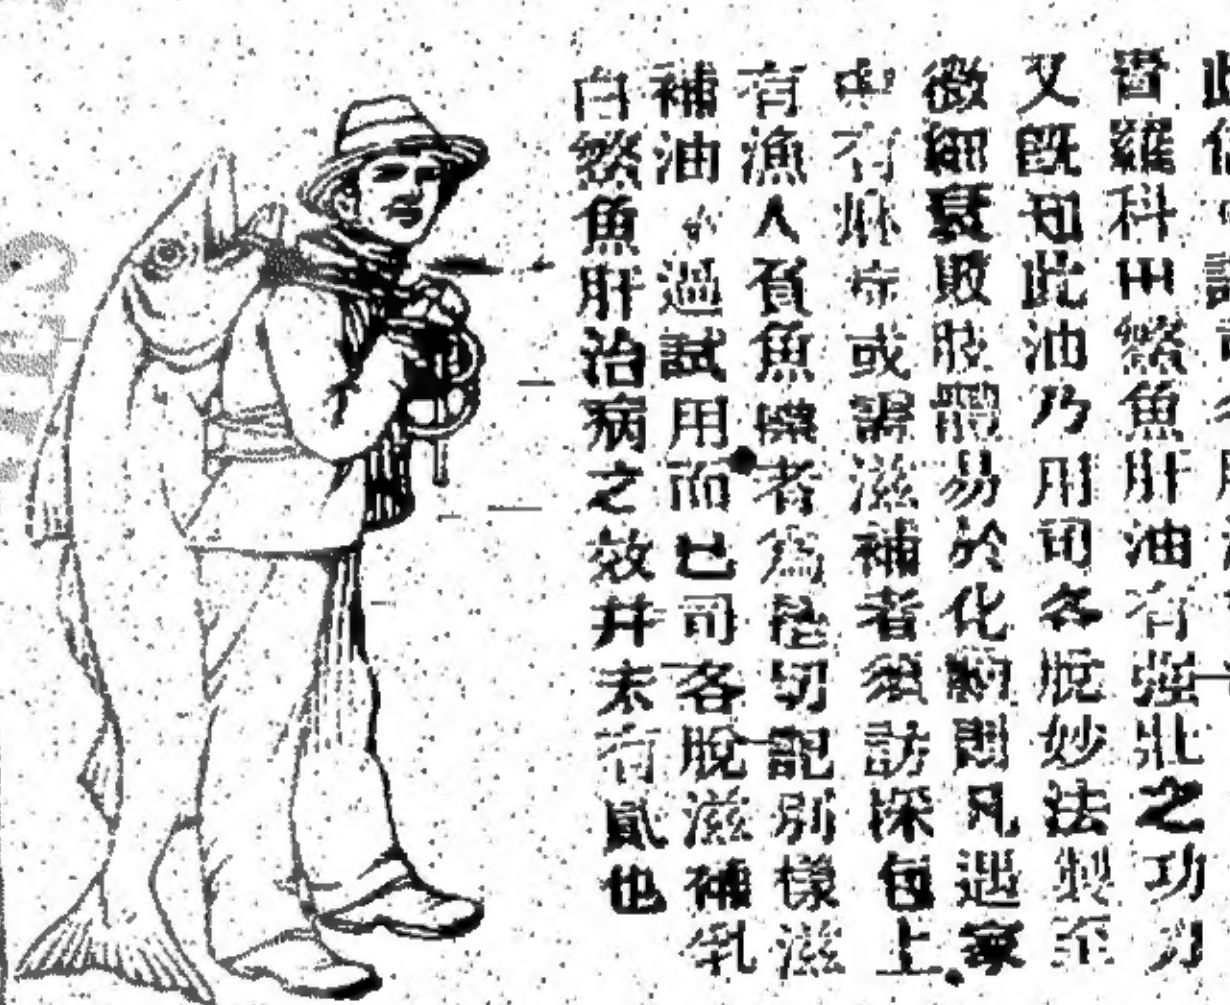 羅科鰵魚肝油有强壯之功力
又既知此油乃用司各脫妙法製至
微細肢體易於化凡遇家
中有症或需滋補者須訪探包上
有漁人負魚樣者為切記別樣滋
補油不過試用而已司各脫滋補乳
白鰵魚肝治病之效并未有貳也